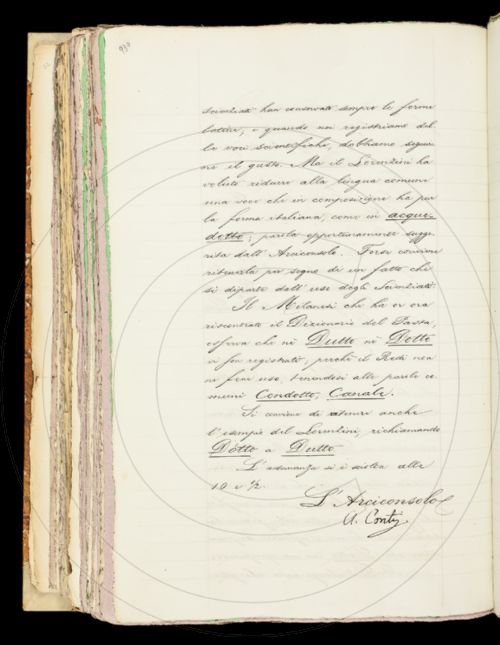 938
scienziati han conservato sempre le forme
latine, e quando noi registriamo del-
le voci scientifiche, dobbiamo seguir-
ne il gusto. Ma il Lorentini ha
voluto ridurre alla lingua comune
una voce che in composizione ha pur
la forma italiana, come in acque-
dotto; parola opportunamente sugge-
rita dall'Arciconsolo. Forse conviene
ritenerla per segno di un fatto che
si diparte dall'uso degli Scienziati.
Il Milanesi che ha or ora
riscontrato il Dizionario del Pasta,
osserva che nè Dutto nè Dotto
vi son registrati, perchè il Redi non
ne fece uso, tenendosi alle parole co-
muni Condotto, Canale.
Si conviene di tenere anche
l'esempio del Lorentini, richiamando
Dotto a Dutto.
L'adunanza si è sciolta alle
10 e 1/2.
L'Arciconsolo
A. Conti